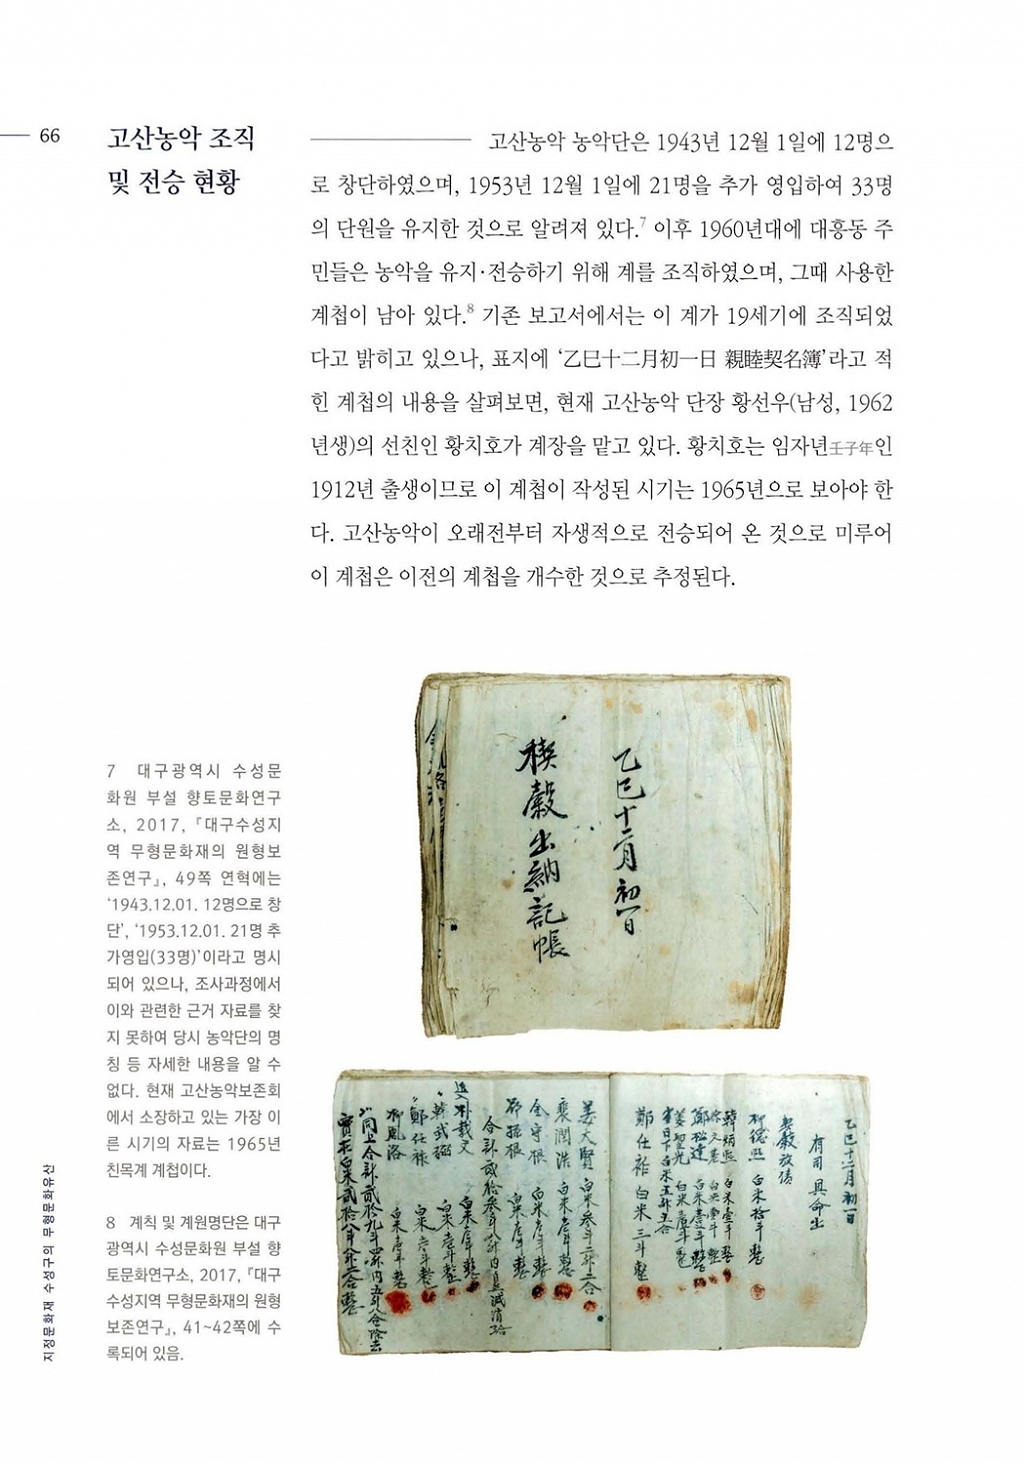 66
고산농악 조직
및 전승 현황
고산농악 농악단은 1943년 12월 1일에 12명으
로 창단하였으며, 1953년 12월 1일에 21명을 추가 영입하여 33명
의 단원을 유지한 것으로 알려져 있다.7 이후 1960년대에 대흥동 주
민들은 농악을 유지·전승하기 위해 계를 조직하였으며, 그때 사용한
계첩이 남아 있다.8 기존 보고서에서는 이 계가 19세기에 조직되었
다고 밝히고 있으나, 표지에 ‘乙巳十二月初一日 親睦契名簿’라고 적
힌 계첩의 내용을 살펴보면, 현재 고산농악 단장 황선우(남성, 1962
년생)의 선친인 황치호가 계장을 맡고 있다. 황치호는 임자년壬子年인
1912년 출생이므로 이 계첩이 작성된 시기는 1965년으로 보아야 한
다. 고산농악이 오래전부터 자생적으로 전승되어 온 것으로 미루어
이 계첩은 이전의 계첩을 개수한 것으로 추정된다.
乙巳十二月初一日
稧穀出納記帳
乙巳十二月初一日
有司 具命出
契穀放債
7 대구광역시 수성문
화원 부설 향토문화연구
소, 2017, 『대구수성지
역 무형문화재의 원형보
존연구』, 49쪽 연혁에는
‘1943.12.01. 12명으로 창
단’, ‘1953.12.01. 21명 추
가영입(33명)’이라고 명시
되어 있으나, 조사과정에서
이와 관련한 근거 자료를 찾
지 못하여 당시 농악단의 명
칭 등 자세한 내용을 알 수
없다. 현재 고산농악보존회
에서 소장하고 있는 가장 이
른 시기의 자료는 1965년
친목계 계첩이다.
8 계칙 및 계원명단은 대구
광역시 수성문화원 부설 향
토문화연구소, 2017, 『대구
수성지역 무형문화재의 원형
보존연구』, 41~42쪽에 수
록되어 있음.
지정문화재 수성구의 무형문화유산